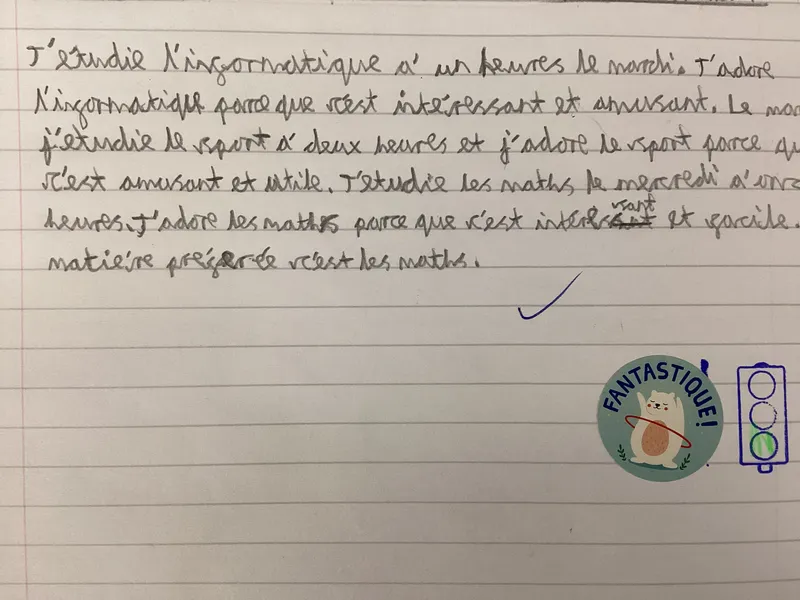 J'étudie l'informatique à un heures le mardi. J'adore
l'informatique parce que c'est intéressant et amusant. Le
j'etudie le sport à deux heures et j'adore le sport parce
c'est amusant et utile. J'étudie les maths le mercredi à
heures. J'adore les maths parce que c'est intéressant et facile.
matière préférée c'est les maths.
FANTASTIQUE!